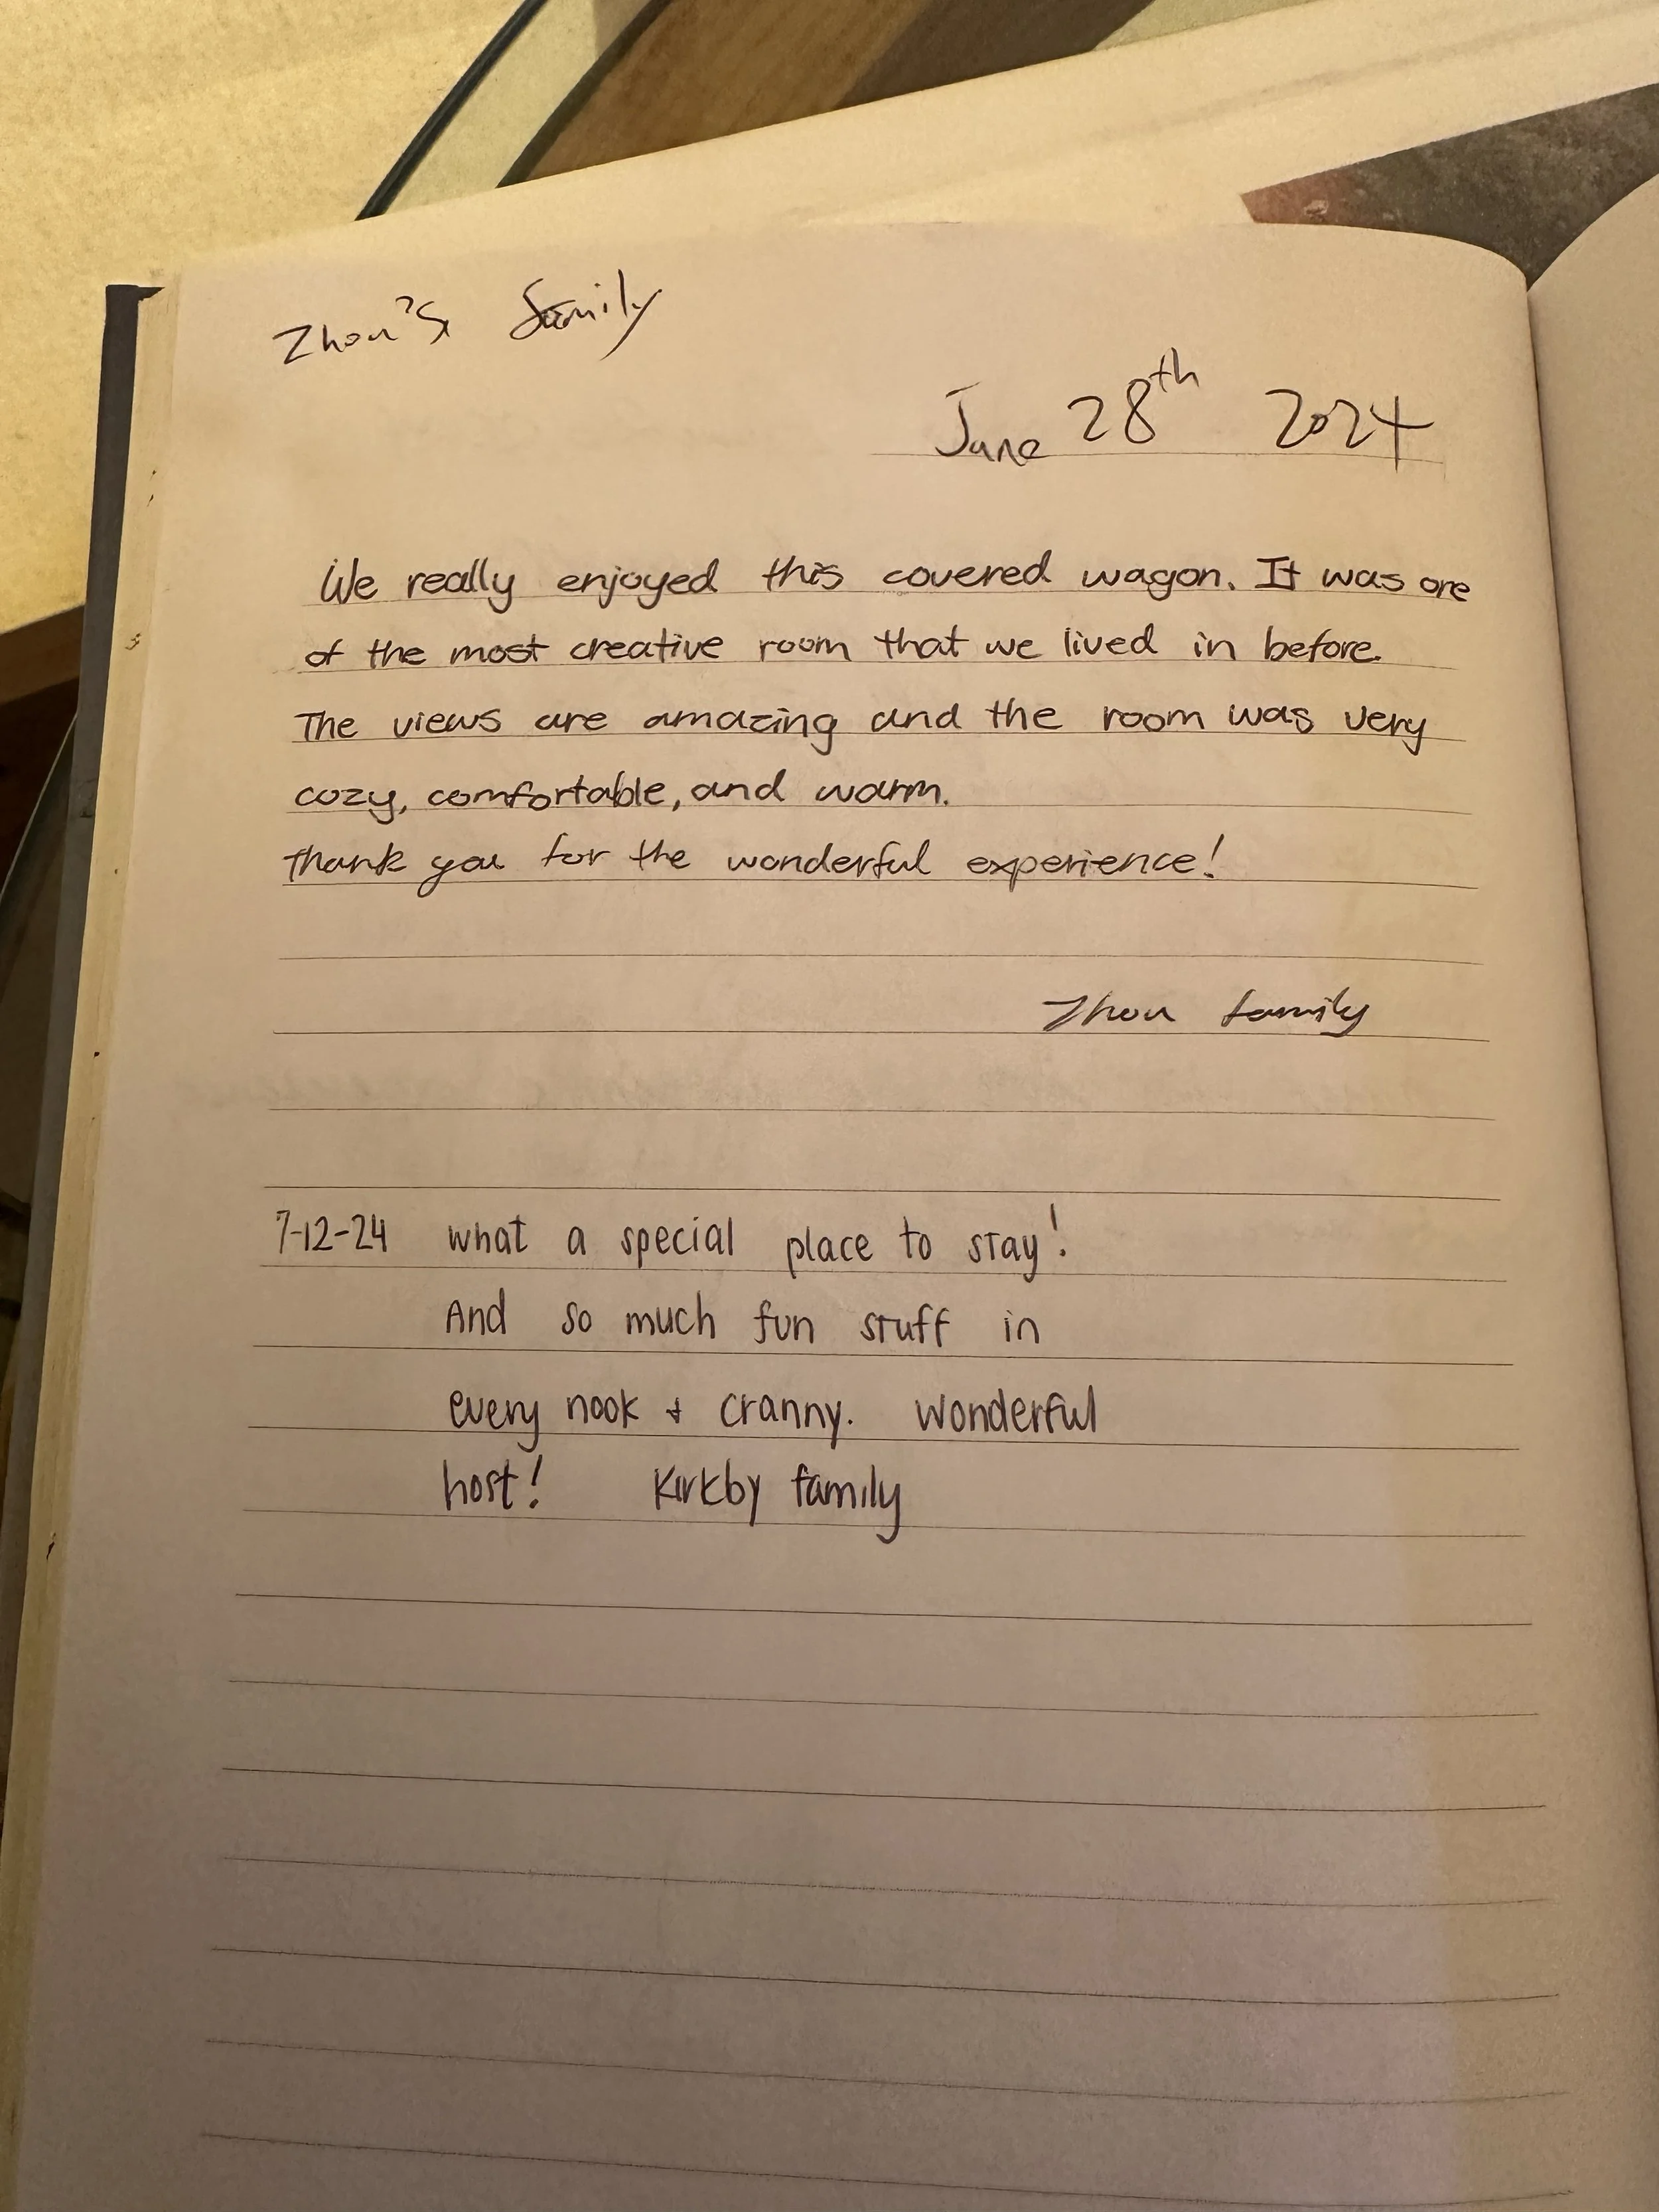 Zhou's family
June 28th 2024
We really enjoyed this covered wagon. It was one
of the most creative room that we lived in before.
The views are amazing and the room was very
cozy, comfortable, and warm.
Thank you for the wonderful experience!
Zhou family
7-12-24 what a special place to stay!
And so much fun stuff in
every nook + cranny. Wonderful
host! Kirkby family